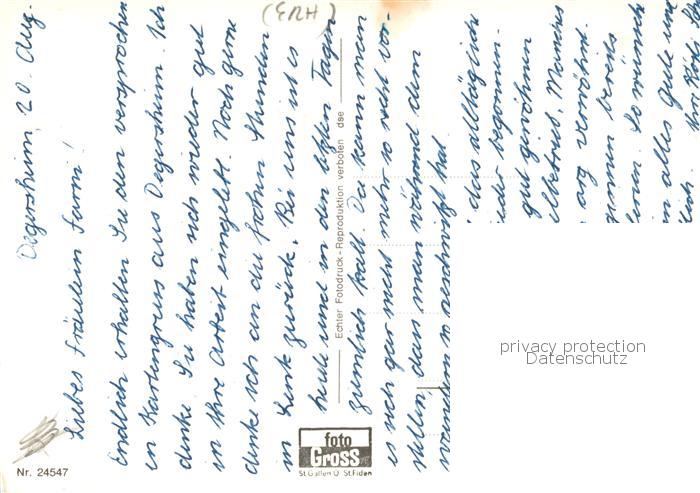 Degersheim, 20. Aug.
Liebes Fräulein
Endlich erhalten Sie den versprochen
en Kartengruss aus Degersheim. Ich
denke Sie haben sich wieder gut
in Ihre Arbeit eingelebt. Noch gerne
denke ich an die frohen Stunden
in Lenk zurück. Bei uns ist es
heute und in den letzten Tagen
ziemlich kalt. Da kann man
es sich gar nicht mehr so recht vor-
stellen, dass man während dem
wandern so geschwitzt hat.
das alltägliche
ieder begonnen.
gut gewöhnen
Manches
arg verwöhnt.
bereits
So wünsch
n alles Gute und
lich.
(ERH)
Echter Fotodruck - Reproduktion verboten dse
foto
Gross
St. Gallen O St. Fiden
Nr. 24547
privacy protection
Datenschutz